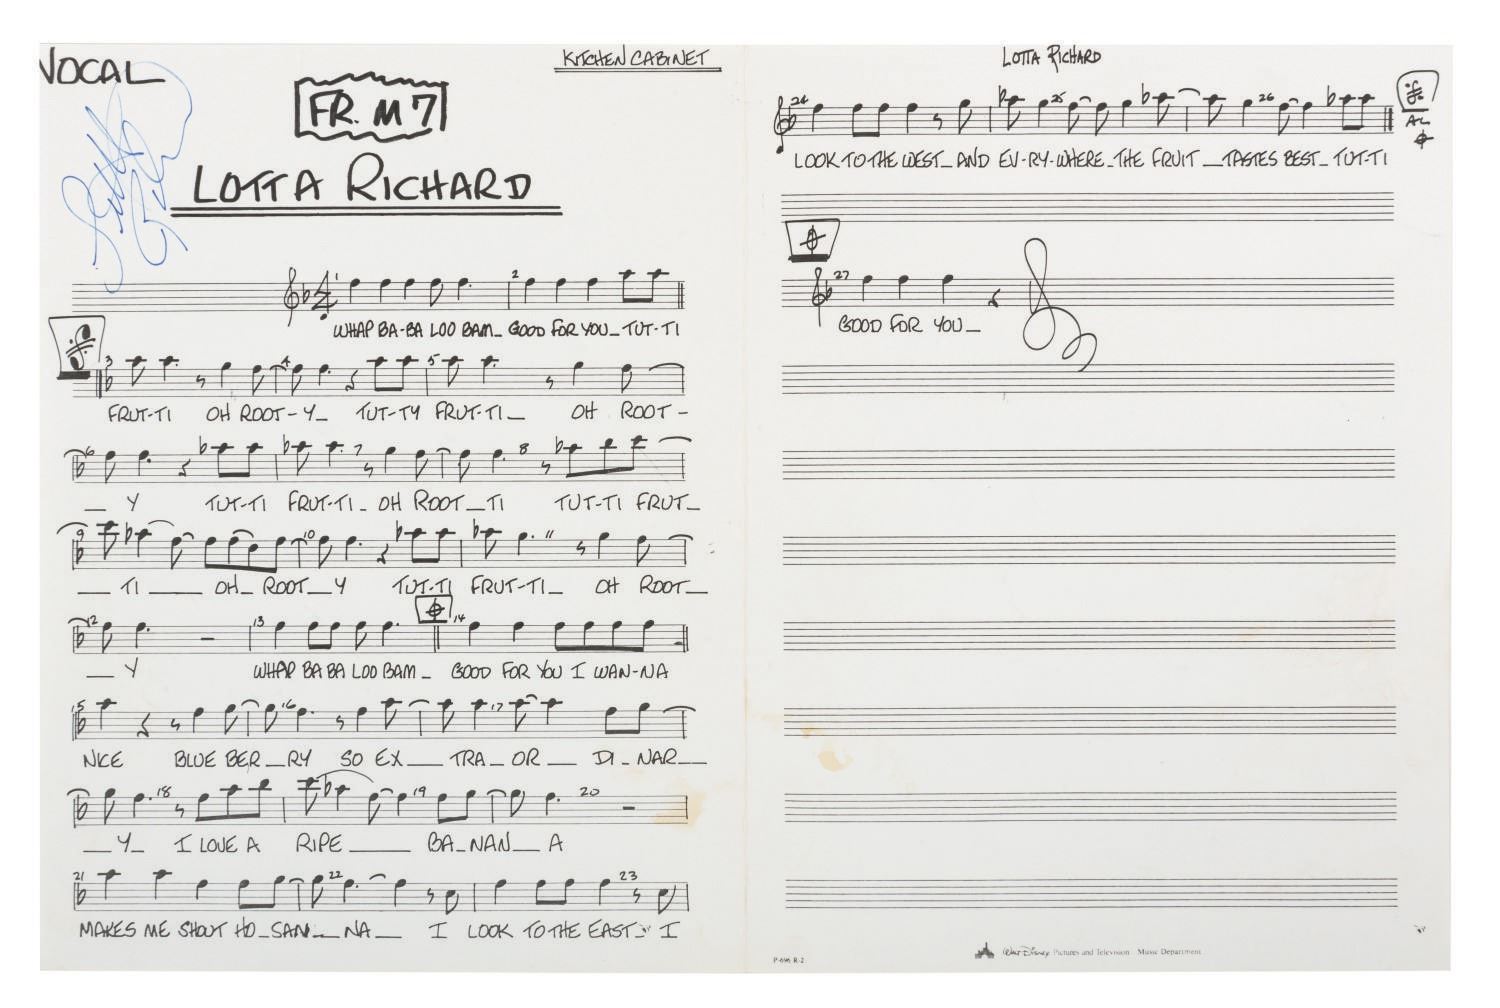 VOCAL
KITCHEN CABINET
FR. M7
LOTTA RICHARD
1 2
WHAP BA-BA LOO BAM_ GOOD FOR YOU_ TUT-TI
3 4 5
FRUT-TI OH ROOT-Y_ TUT-TY FRUT-TI_ OH ROOT-
6 7 8
_ Y TUT-TI FRUT-TI_ OH ROOT_TI TUT-TI FRUT_
9 10 11
_ TI _ OH_ ROOT_Y TUT-TI FRUT-TI_ OH ROOT_
12 13 14
_ Y WHAP BA BA LOO BAM_ GOOD FOR YOU I WAN-NA
15 16 17
NICE BLUE BER_RY SO EX_ TRA_ OR_ DI_NAR_
18 19 20
_Y_ I LOVE A RIPE _ BA_NAN_ A
21 22 23
MAKES ME SHOUT HO_SAN_NA_ I LOOK TO THE EAST_ I
LOTTA RICHARD
24 25 26
AL
LOOK TO THE WEST_ AND EV-RY-WHERE_ THE FRUIT_ TASTES BEST_ TUT-TI
27
GOOD FOR YOU_
P-696 R-2
Walt Disney Pictures and Television Music Department